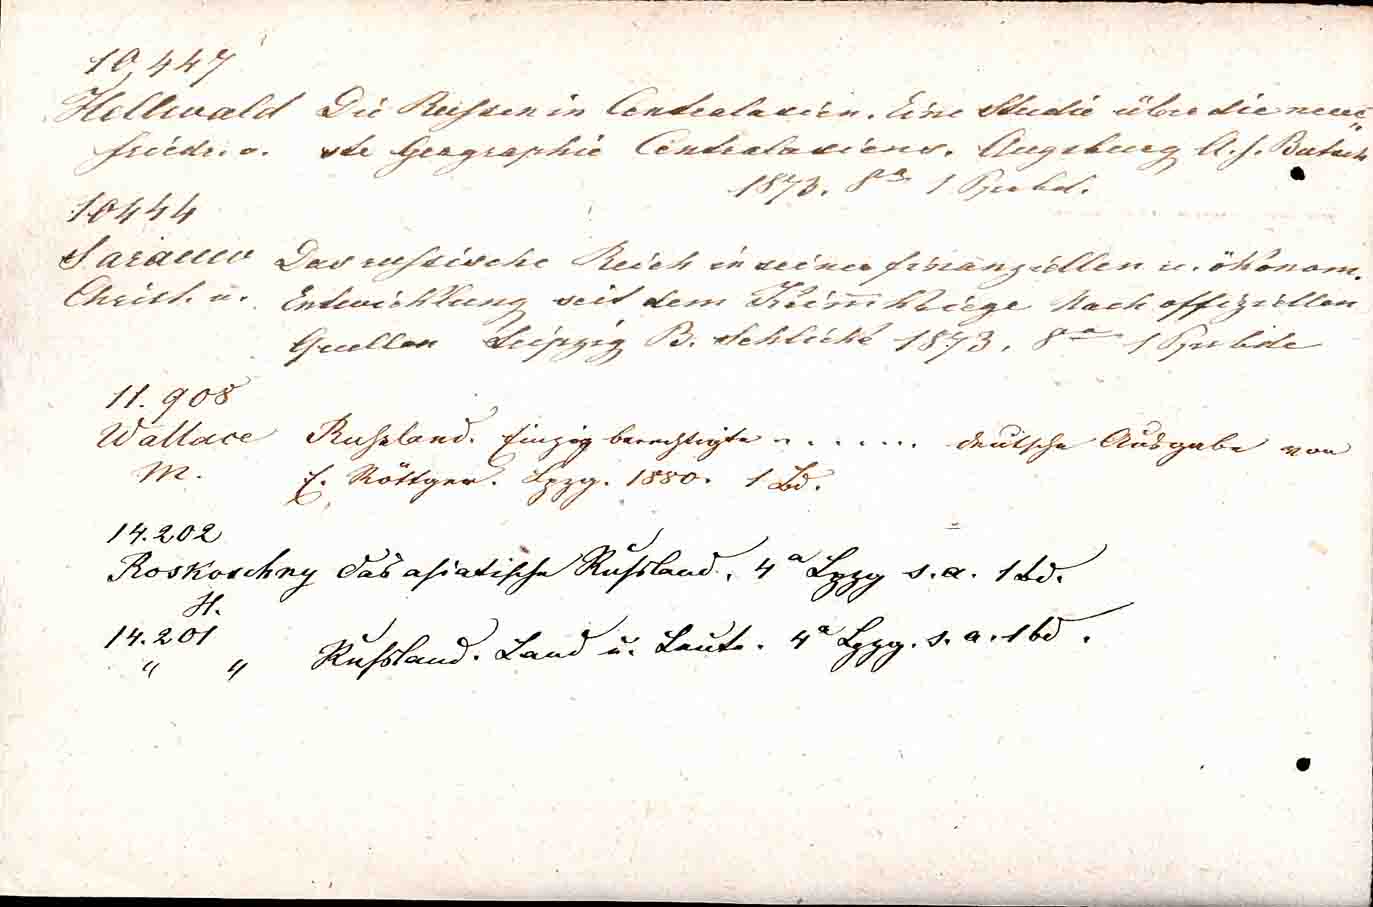 10,447
Hellwald Die Russen in Centralasien. Eine Studie über die neue=
Friedr. v. ste Geographie Centralasiens. Augsburg
1873. 8° 1
10444
Sarauw Das russische Reich in seiner finanziellen u. ökonom.
Christ. v. Entwicklung seit dem Krimmkriege Nach offiziellen
Quellen Leipzig B. Schlicke 1873. 8° 1
11.908
Wallace Russland. Einzig berechtigte ....... deutsche Ausgabe von
M. E. Röttger. Lpzg. 1880. 1 Bd.
14.202
Roskoschny das asiatische Russland. 4° Lpzg s.a. 1 Bd.
H.
14.201
" " Russland. Land u. Leute. 4° Lpzg. s.a. 1 bd.